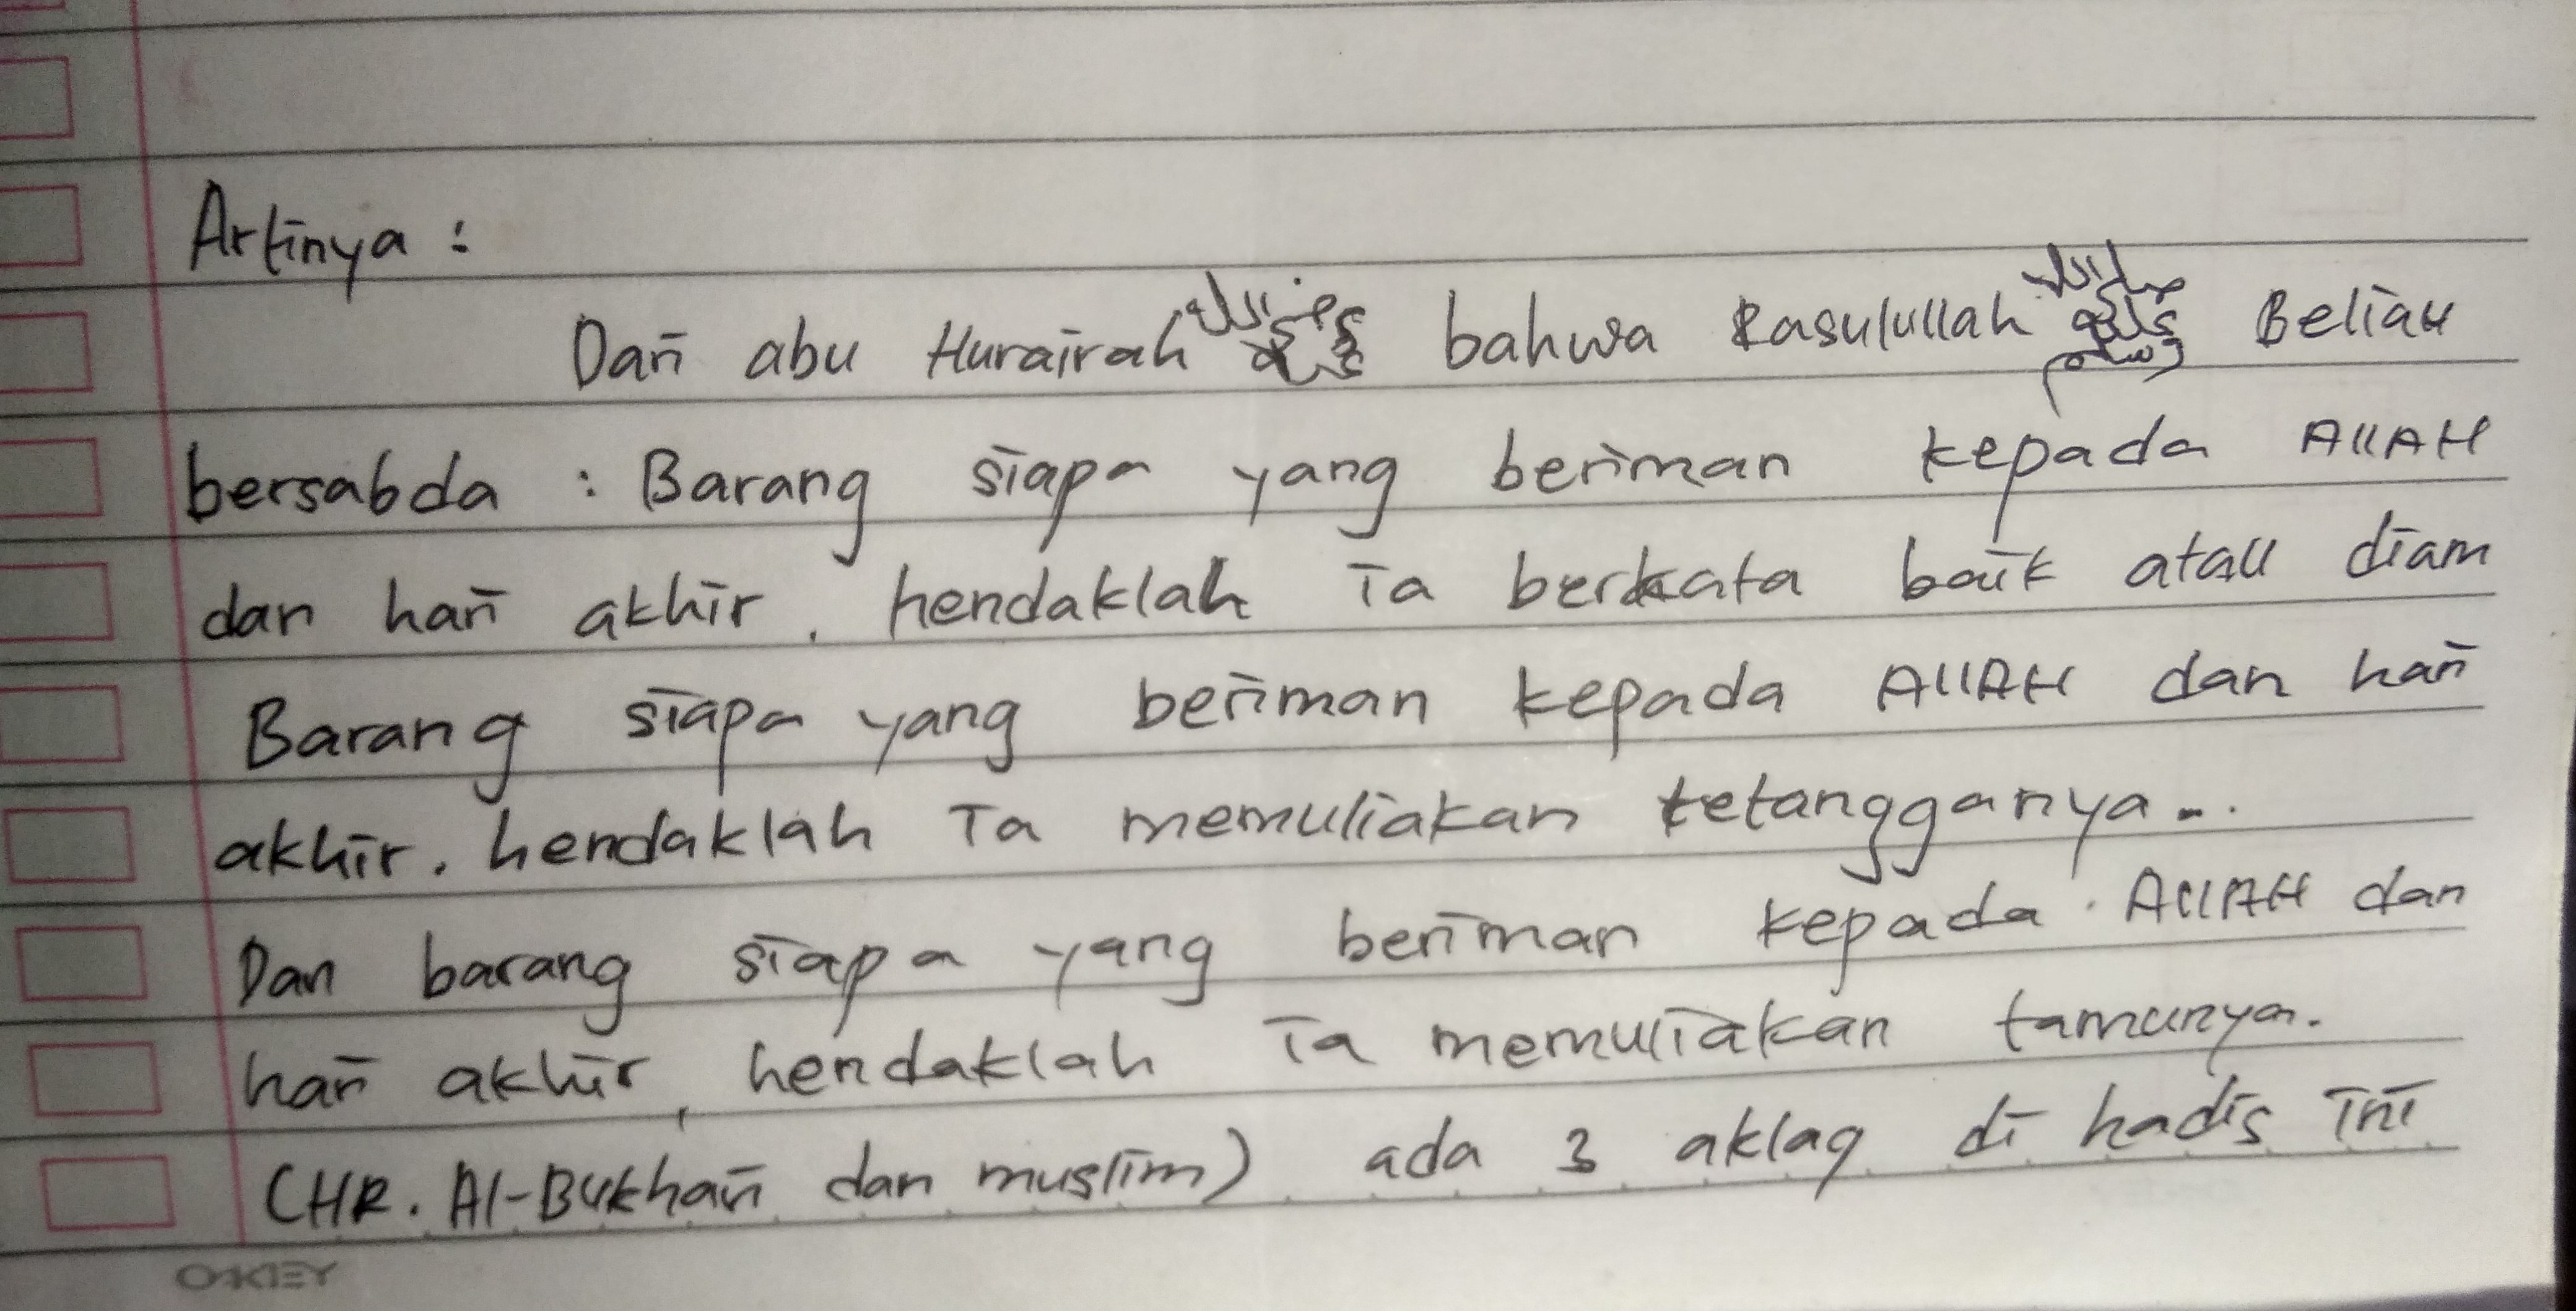 Artinya :
Dari abu Hurairah رضي الله عنه bahwa Rasulullah صلى الله عليه وسلم Beliau
bersabda : Barang siapa yang beriman kepada AllAH
dan hari akhir, hendaklah Ia berkata baik atau diam
Barang siapa yang beriman kepada AllAH dan hari
akhir. hendaklah Ia memuliakan tetangganya...
Dan barang siapa yang beriman kepada AllAH dan
hari akhir, hendaklah Ia memuliakan tamunya.
(HR. Al-Bukhari dan muslim) ada 3 aklaq di hadis Ini
OKEY